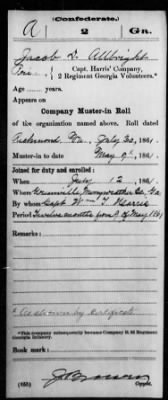 (Confederate.)
A 2 Ga.
Jacob D. Allbright
Pri , Capt. Harris' Company,
2 Regiment Georgia Volunteers.*
Age years.
Appears on
Company Muster-in Roll
of the organization named above. Roll dated
Richmond Va., July 30, 1861.
Muster-in to date May 9th, 1861.
Joined for duty and enrolled:
When July 12, 1861.
Where Greenville, Merryweather Co, Ga
By whom Capt Wm T. Harris
Period Twelve months from 9 of May 1861
Remarks:
*This company subsequently became Company
Georgia Infantry.
Book mark:
(655)